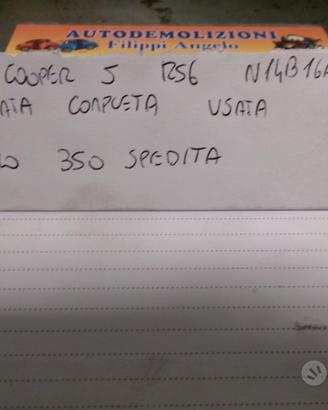 AUTODEMOLIZIONI
Filippi Angelo
COOPER S R56 N14B16A
COMPLETA USATA
350 SPEDITA